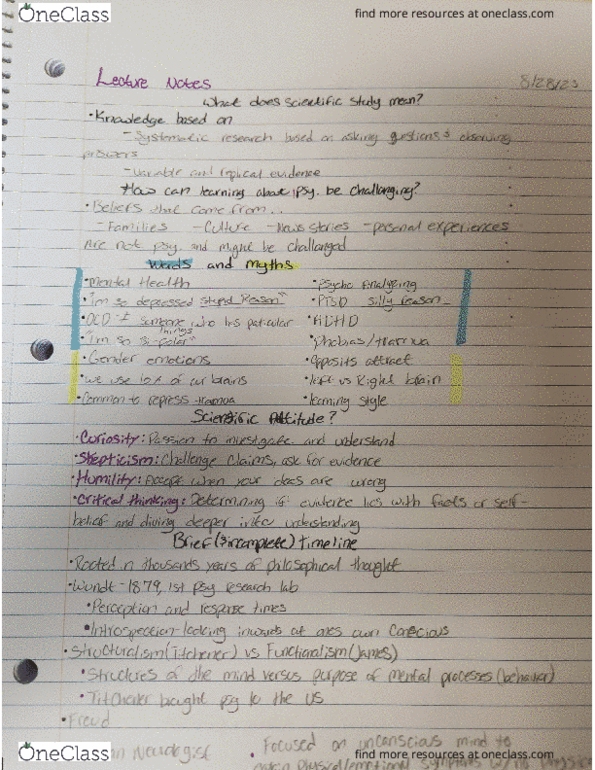 OneClass
find more resources at oneclass.com
Lecture Notes 8/28/23
What does scientific study mean?
• Knowledge based on
- Systematic research based on asking questions & observing
answers
- Variable and replical evidence
How can learning about psy. be challanging?
• Beliefs that come from...
- Families - Culture - News stories - personal experiences
Are not psy. and might be challanged
Words and myths
• Mental Health • Psycho Analyzing
• "I'm so depressed stupid Reason" • PTSD silly Reason
• OCD - someone who has paticular things • ADHD
• "I'm so bi-polar" • phobias/trauma
• Gender emotions • Opposits attract
• We use 10% of our brains • left vs Right brain
• Common to repress trauma • learning style
Scientific Attitude?
• Curiosity: Passion to investigate and understand
• Skepticism: Challenge Claims, ask for evidence
• Humility: Accept when your ideas are wrong
• Critical thinking: Determining if evidence lies with facts or self-
belief and diving deeper into understanding
Brief (& incomplete) timeline
• Rooted in thousands years of philosophical thought
• Wundt - 1879, 1st psy research lab
• Perception and response times
• Introspection - looking inwards at ones own Conscious
• Structuralism (Titchener) vs Functionalism (James)
• Structures of the mind versus purpose of mental processes (behavior)
• Titchener bought psy to the US
• Freud
Neurologist • Focused on unconscious mind to
physical/emotional symptoms
OneClass
find more resources at oneclass.com